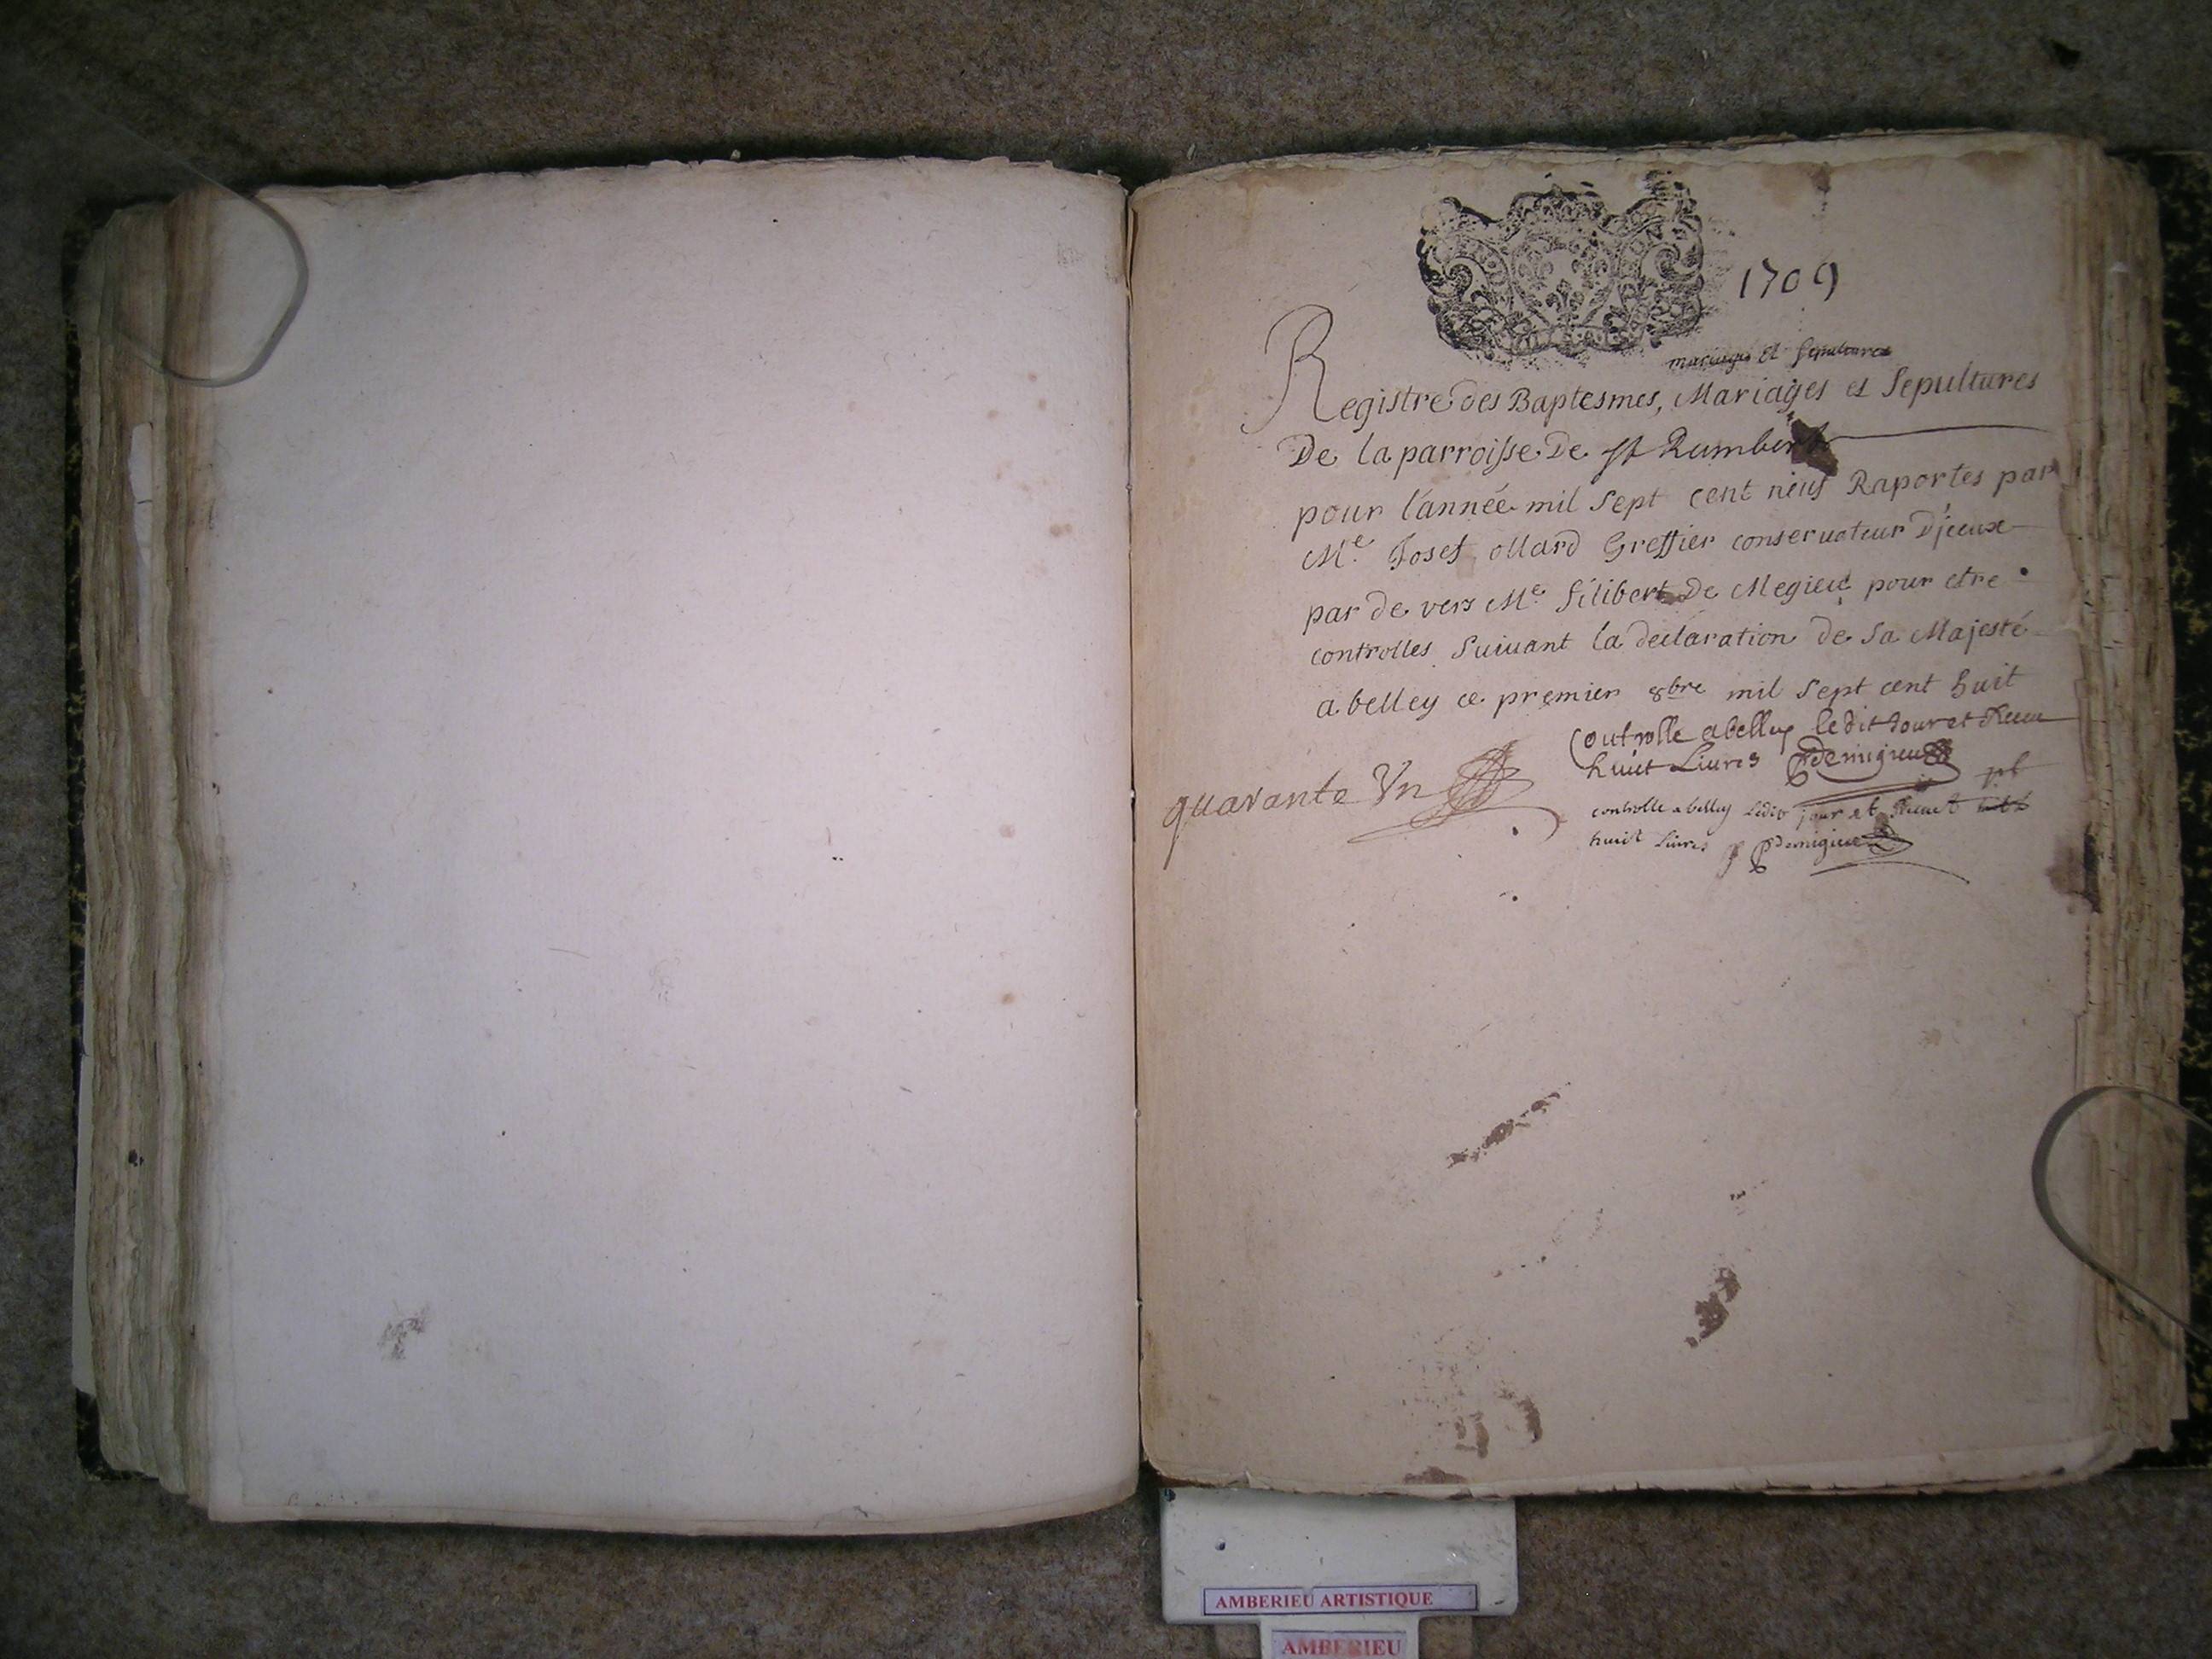 1709
mariages et sepultures
Registre des Baptesmes, Mariages et Sepultures
De la parroisse De st Rambert
pour l'année mil sept cent neuf Raportes par
Me Josef ollard Greffier conservateur D'jceux
par de vers Me filibert De Megieu pour etre
controlles suivant la declaration de sa Majesté
a belley ce premier 8bre mil sept cent huit
Controlle a belley ledit jour et Receu
huict Livres Demigieu
quarante Vn
controlle a belley ledit jour et Receut
huict livres Demigieu
AMBERIEU ARTISTIQUE
AMBERIEU